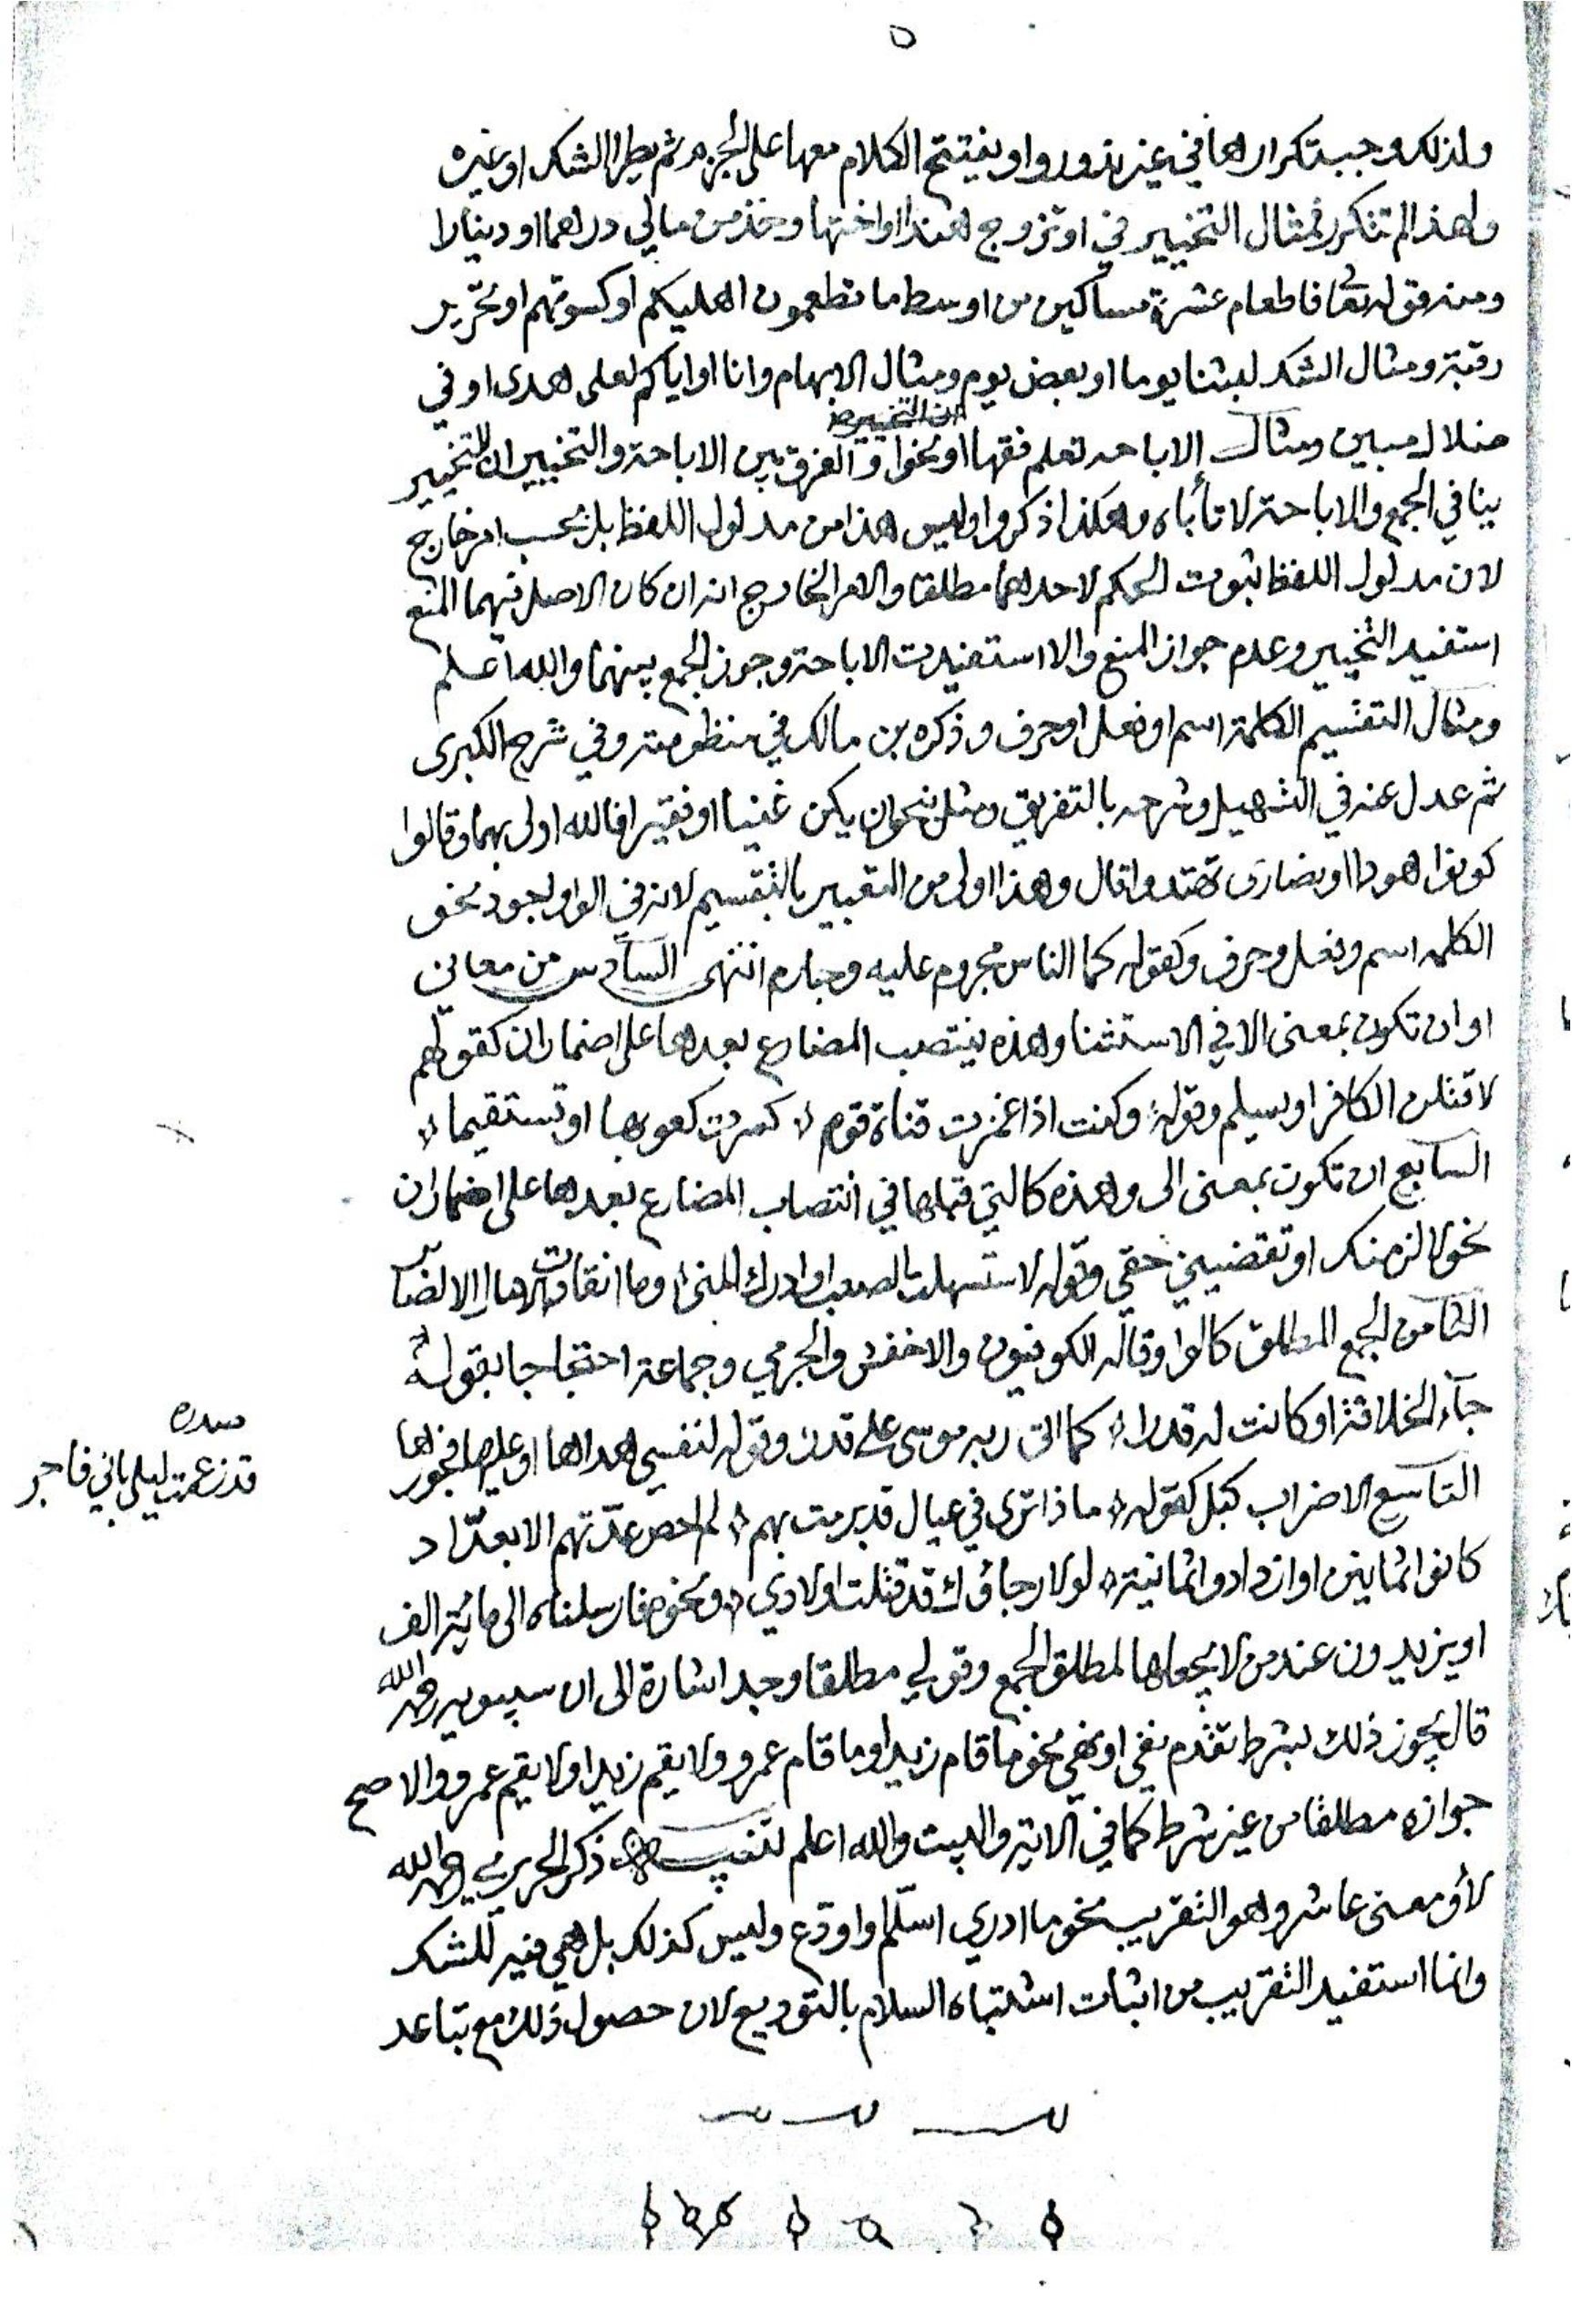 ٥
ولذلك وجب تكرارها في غير ندور واو يفتتح الكلام معها على الجزم ثم يطرا الشك او غيره
ولهذا لم تتكرر فمثال التخيير في او تزوج هندا او اختها وخذ من مالي درهما او دينارا
ومنه قوله تعا فاطعام عشرة مساكين من اوسط ما تطعمون اهليكم او كسوتهم او تحرير
رقبة ومثال الشك لبثنا يوما او بعض يوم ومثال الابهام وانا او اياكم لعلى هدى او في
ضلال مبين ومثال الاباحه تعلم فقها او نحوا و الفرق بين الاباحة والتخيير ان التخيير
ينافي الجمع والاباحة لا تأباه وهكذا ذكروا وليس هذا من مدلول اللفظ بل بحسب امر خارج
لان مدلول اللفظ ثبوت الحكم لاحدهما مطلقا والامر الخارج انه ان كان الاصل فيهما المنع
استفيد التخيير وعدم جواز المنع والا استفيدت الاباحة وجوز الجمع بينهما والله اعلم
ومثال التقسيم الكلمة اسم او فعل او حرف وذكره بن مالك في منظومته وفي شرح الكبرى
ثم عدل عنه في التسهيل وشرحه بالتفريق ومثل بنحو ان يكن غنيا او فقيرا فالله اولى بهما وقالوا
كونوا هودا او نصارى تهتدوا قال وهذا اولى من التعبير بالتقسيم لانه في الواو اجود نحو
الكلمه اسم وفعل وحرف وكقوله كما الناس مجروم عليه وجارم انتهى السادس من معاني
او ان تكون بمعنى الا في الاستثنا وهذه ينتصب المضارع بعدها على اضمار ان كقولهم
لاقتلن الكافر او يسلم وقوله وكنت اذا غمزت قناة قوم كسرت كعوبها او تستقيما
السابع ان تكون بمعنى الى وهذه كالتي قبلها في انتصاب المضارع بعدها على اضمار ان
نحو لالزمنك او تقضيني حقي وقوله لاستسهلن الصعب او ادرك المنى وما انقادت الامال الا لصابر
الثامن الجمع المطلق كالواو قاله الكوفيون والاخفش والجرمي وجماعة احتجاجا بقوله
جآء الخلافة او كانت له قدرا كما اتى ربه موسى على قدر وقوله لنفسي هداها او عليها فجورها
صدره
قد زعمت ليلى باني فاجر
التاسع الاضراب كبل كقوله ماذا ترى في عيال قد برمت بهم لم احص عدتهم الا بعداد
كانوا ثمانين او ازدادوا ثمانية لولا رجاؤك قد قتلت اولادي ونحو فارسلناه الى مائة الف
او يزيدون عند من لا يجعلها لمطلق الجمع وقولي مطلقا وجد اشارة الى ان سيبويه رحمه الله
قال يجوز ذلك بشرط تقدم نفي او نهي نحو ما قام زيد او ما قام عمرو ولا يقم زيد او لا يقم عمرو والاصح
جوازه مطلقا من غير شرط كما في الاية والبيت والله اعلم تنبيه ذكر الحريري رحمه الله
لأو معنى عاشر وهو التقريب نحو ما ادري اسلم او ودع وليس كذلك بل هي فيه للشك
وانما استفيد التقريب من اثبات اشتباه السلام بالتوديع لان حصول ذلك مع تباعد